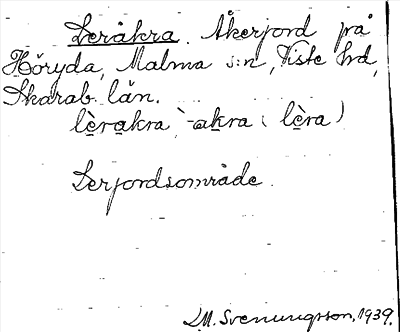 Leråkra. Åkerjord på
Höryda, Malma s:n, Viste hrd,
Skarab. län.
lèrakra, -akra (lèra)
Lerjordsområde.
M. Svenungsson, 1939.